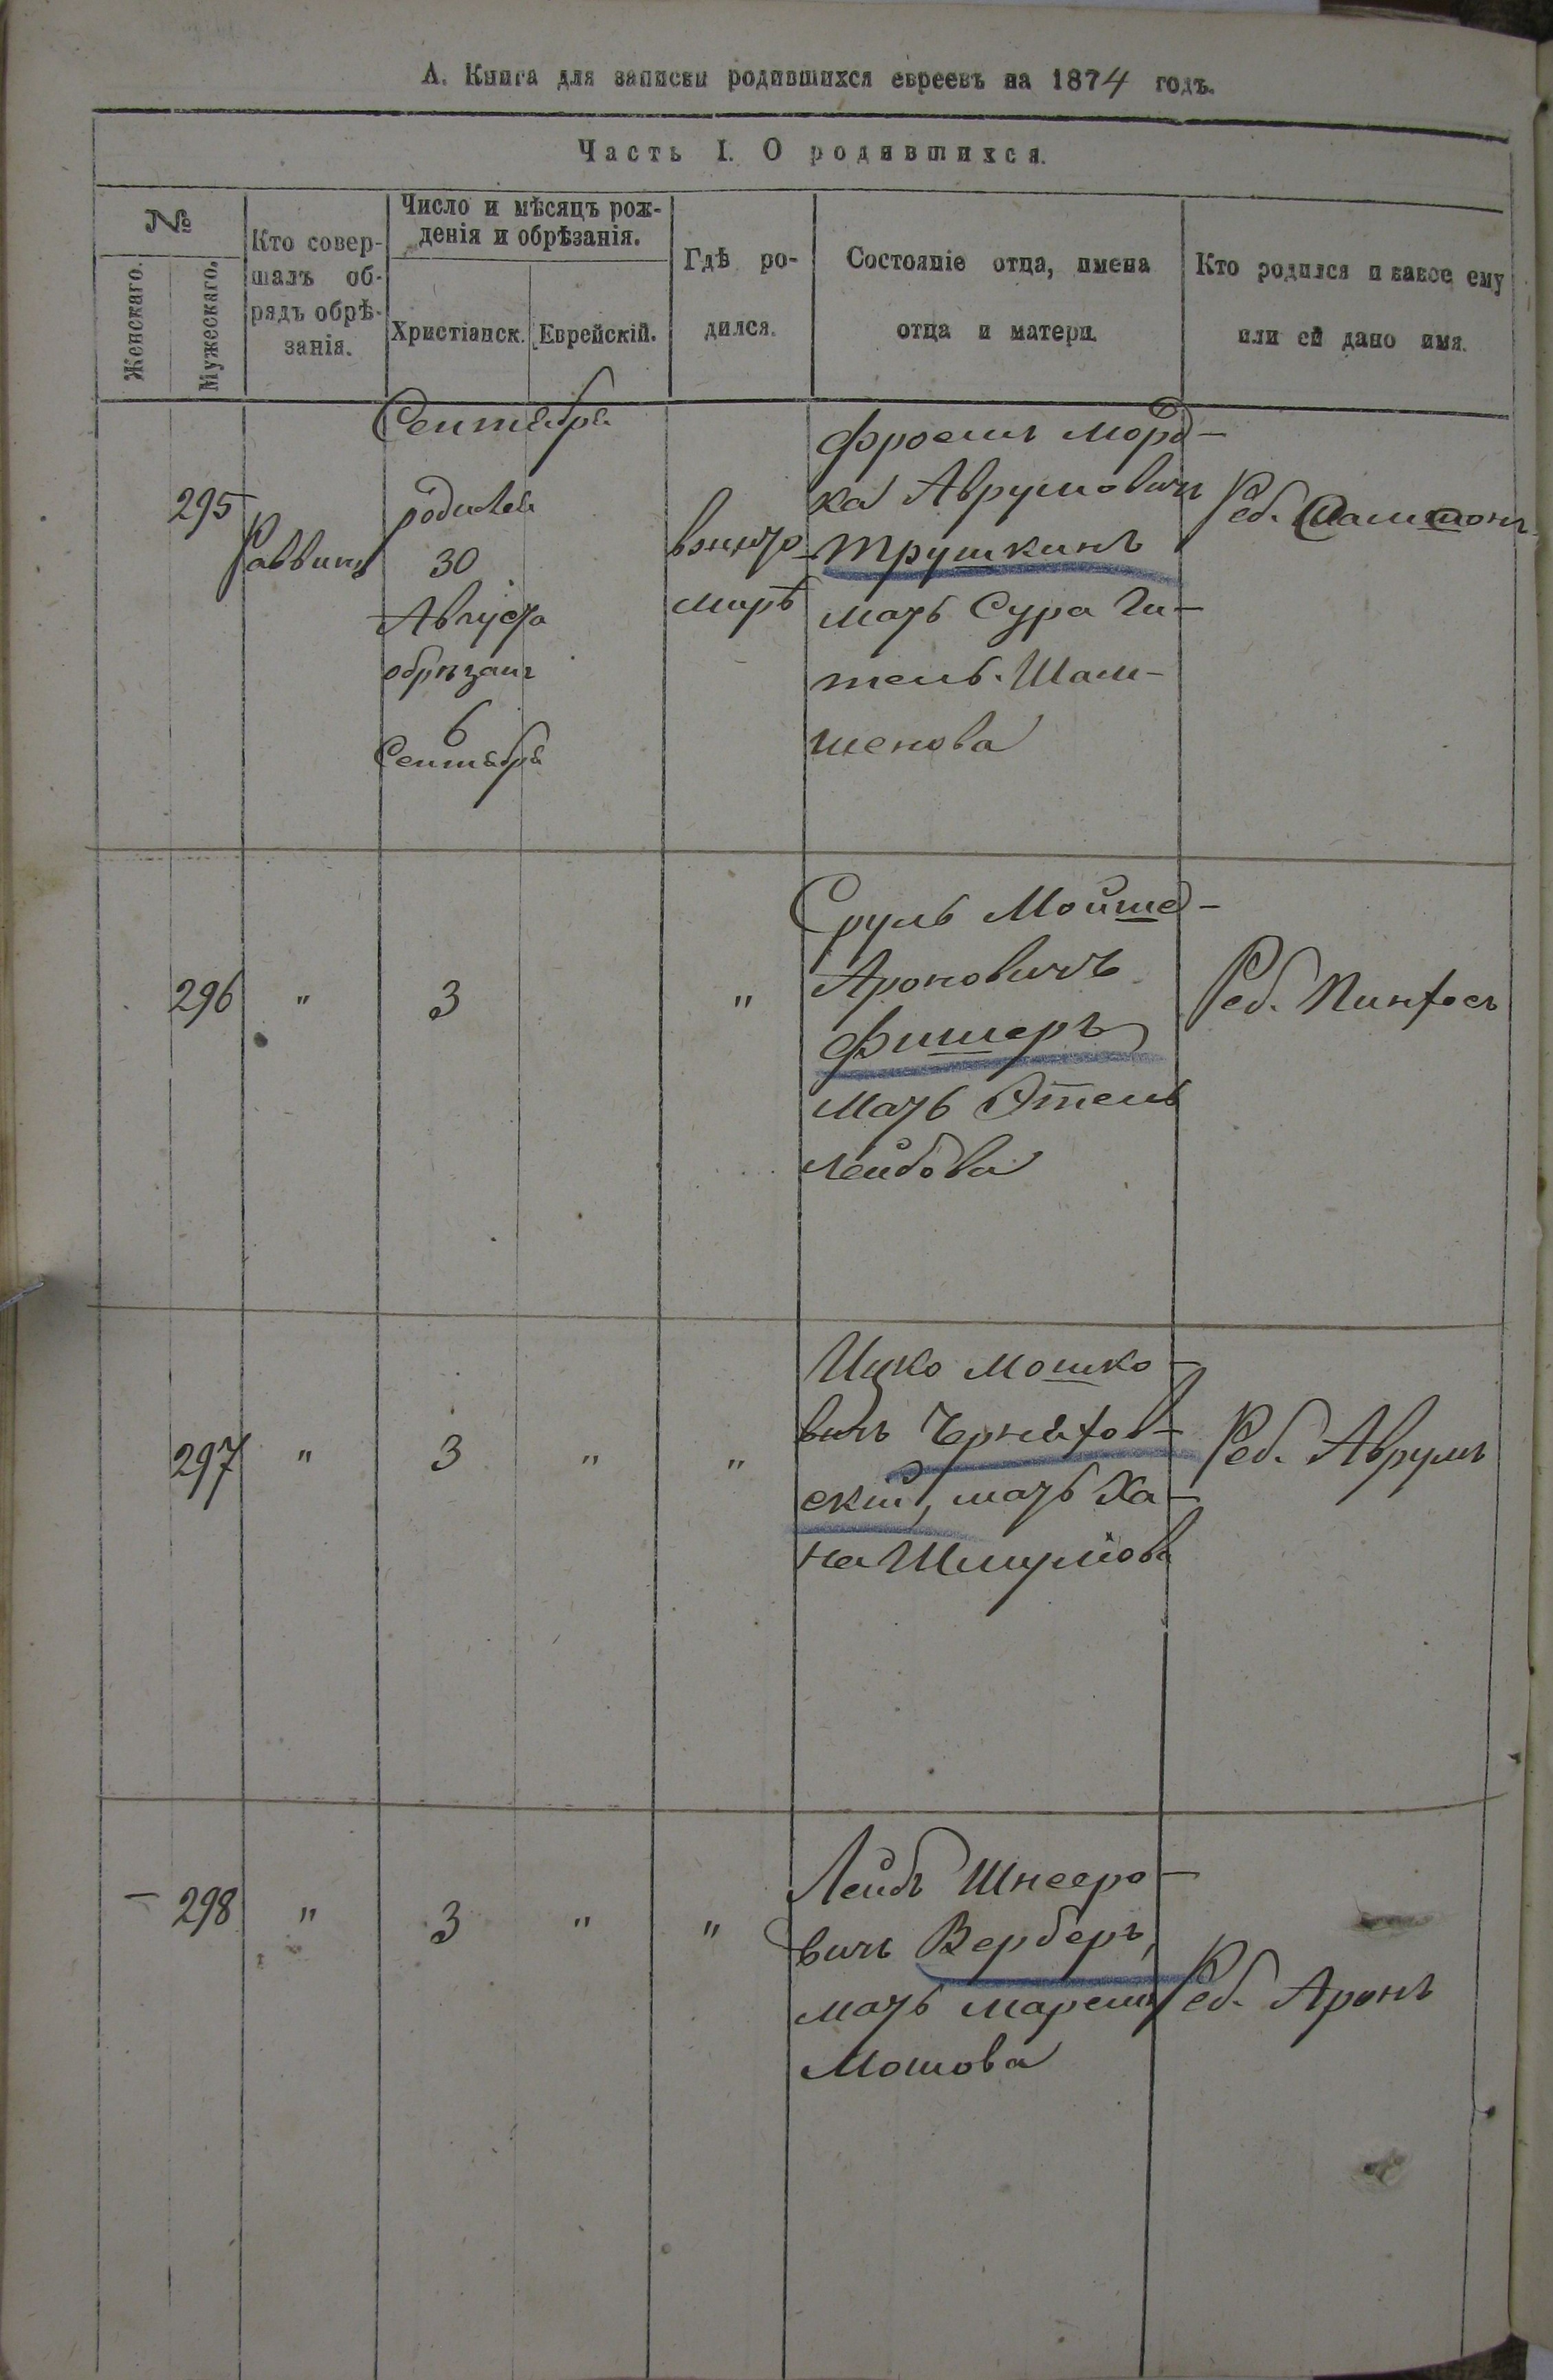 А. Книга для записки родившихся евреевъ на 1874 годъ.
Часть I. О родившихся.
№
Женскаго.
Мужескаго.
Кто совер-
шалъ об-
рядъ обрѣ-
занія.
Число и мѣсяцъ рож-
денія и обрѣзанія.
Христіанск.
Еврейскій.
Гдѣ ро-
дился.
Состояніе отца, имена
отца и матери.
Кто родился и какое ему
или ей дано имя.
Сентября
295
Раввинъ
родился
30
Августа
обрѣзанъ
6
Сентября
мирѣ
Фроемъ Морд-
ка Аврумовичъ
Трушкинъ
мать Сура Ги-
тель Шам-
шенова
Реб. Шамшонъ
296
"
3
"
Сруль Мойше-
Ароновичъ
Фишеръ
мать Этель
Лейбова
Реб. Пинхосъ
297
"
3
"
"
Ицко Мошко-
вичъ Черняхов-
скій, мать Ха-
на Шмулова
Реб. Аврумъ
298
"
3
"
"
Лейбъ Шнееро-
вичъ Верберъ,
мать
Мошова
Реб. Аронъ